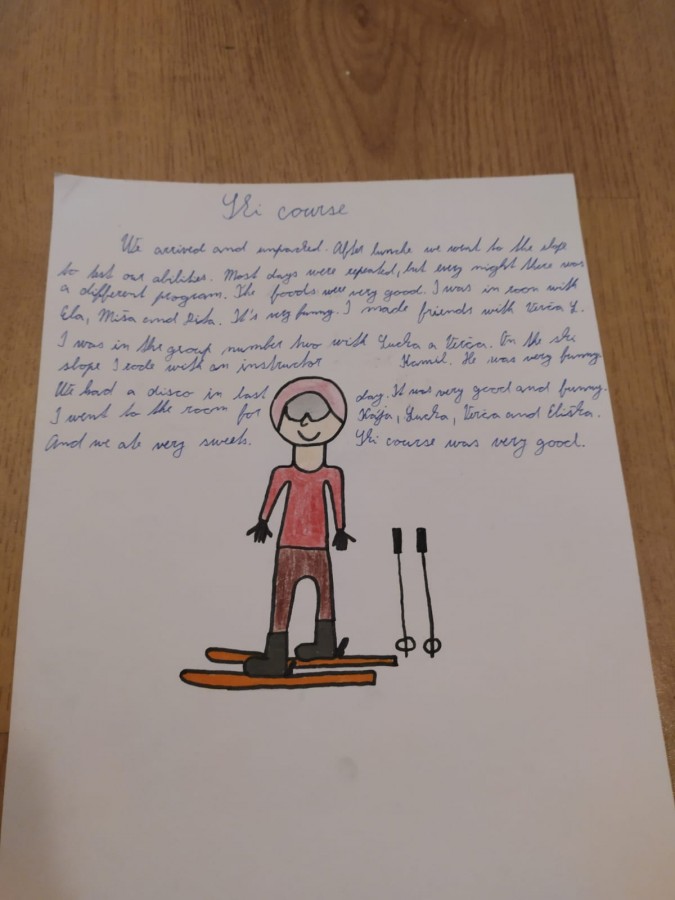 Ski course
We arrived and unpacked. After lunche we went to the slope
to test our abilities. Most days were repeated, but every night there was
a different program. The foods were very good. I was in room with
Ela, Míša and Gita. It's very funny. I made friends with Verča Y.
I was in the group number two with Lucka a Verča. On the ski
slope I rode with an instructor Kamil. He was very funny.
We had a disco in last day. It was very good and funny.
I went to the room for Kája, Lucka, Verča and Eliška.
And we ate very sweets. Ski course was very good.